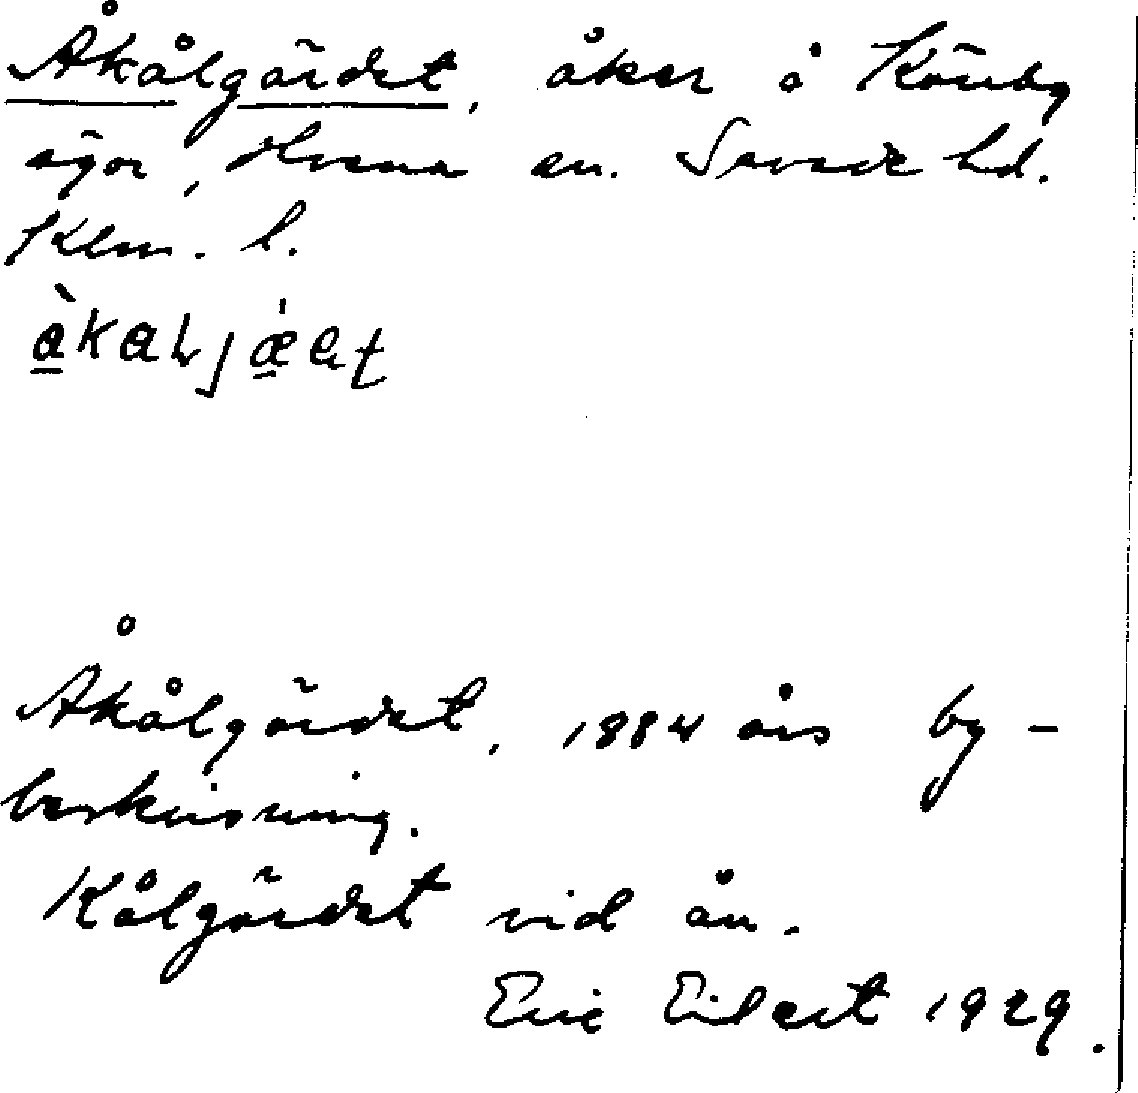 Åkålgärdet, åker å Kärrby
ägor, Hosna sn. Sevede hd.
Klm. l.
Åkålgärdet, 1884 års by-
beskrivning.
Kålgärdet vid ån.
Eric Eilert 1929.